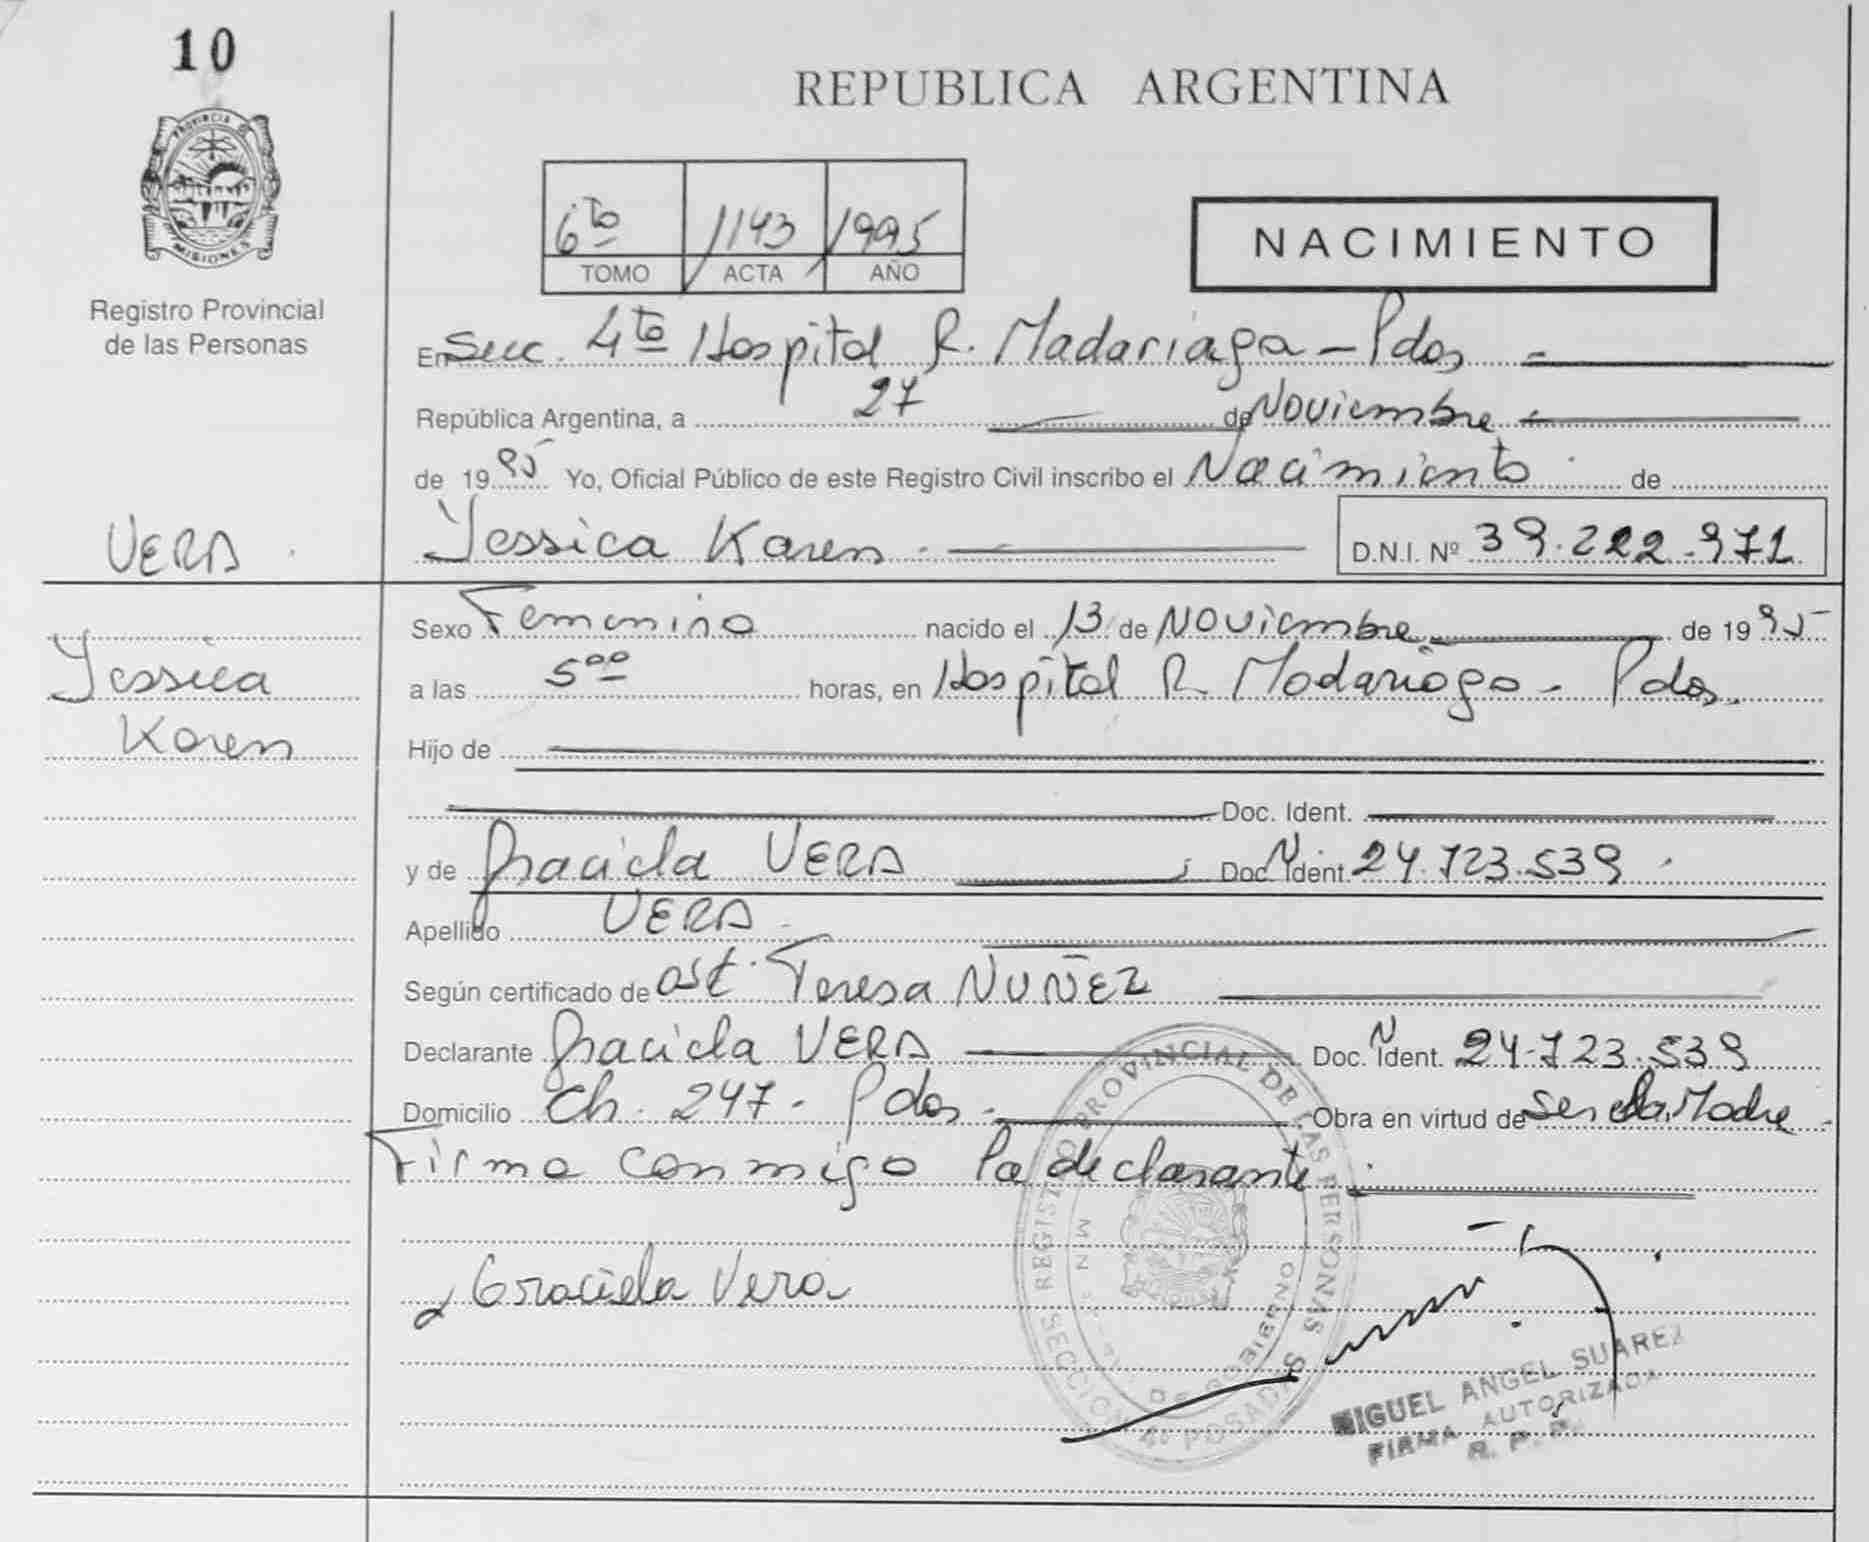 10
PROVINCIA DE
MISIONES
Registro Provincial
de las Personas
VERA
Yessica
Karen
REPUBLICA ARGENTINA
6to 1143 1995
TOMO ACTA AÑO
NACIMIENTO
En Secc. 4ta Hospital R. Madariaga - Pdas
República Argentina, a 27 de Noviembre
de 1995 Yo, Oficial Público de este Registro Civil inscribo el Nacimiento de
Yessica Karen D.N.I. Nº 39.222.971
Sexo Femenino nacido el 13 de Noviembre de 1995
a las 5 00 horas, en Hospital R. Madariaga - Pdas.
Hijo de
Doc. Ident.
y de Graciela VERA Doc. Ident. 24.723.539
Apellido VERA
Según certificado de Ost. Teresa NUÑEZ
Declarante Graciela VERA Doc. Ident. 24.723.539
Domicilio Ch. 247 - Pdas - Obra en virtud de Ser la Madre
Firma conmigo la declarante
Graciela Vera
REGISTRO PROVINCIAL DE LAS PERSONAS
SECCION 4º POSADAS
DE GOBIERNO
MIGUEL ANGEL SUAREZ
FIRMA AUTORIZADA
R. P. P.